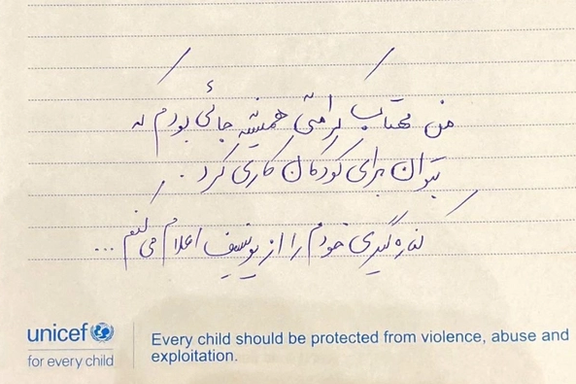 من مهتاب کرامتی همیشه جائی بودم که
بتوان برای کودکان کاری کرد .
کناره گیری خودم را از یونیسف اعلام می کنم ...
unicef
for every child
Every child should be protected from violence, abuse and
exploitation.